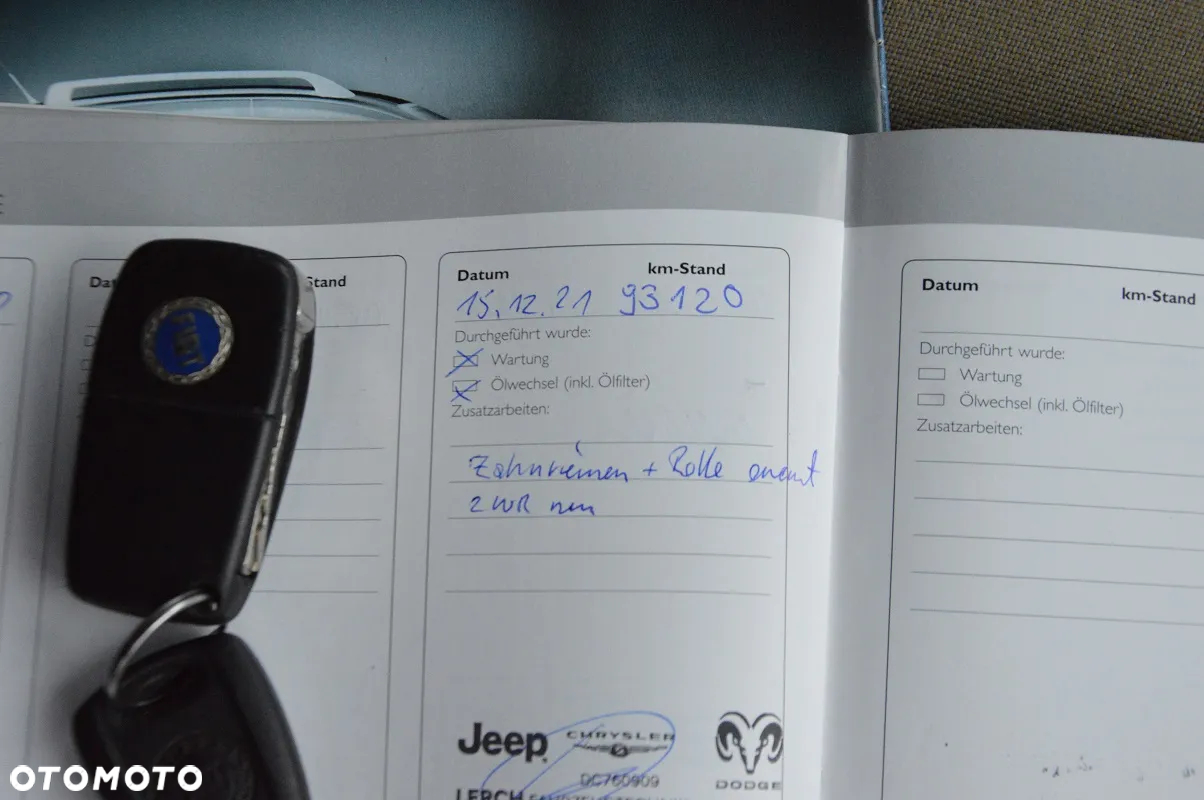 FIAT
Stand
Datum km-Stand
15.12.21 93120
Durchgeführt wurde:
Wartung
Ölwechsel (inkl. Ölfilter)
Zusatzarbeiten:
Zahnriemen + Rolle
2 WR neu
Jeep CHRYSLER
DC760909 DODGE
LERCH
Datum km-Stand
Durchgeführt wurde:
Wartung
Ölwechsel (inkl. Ölfilter)
Zusatzarbeiten:
OTOMOTO